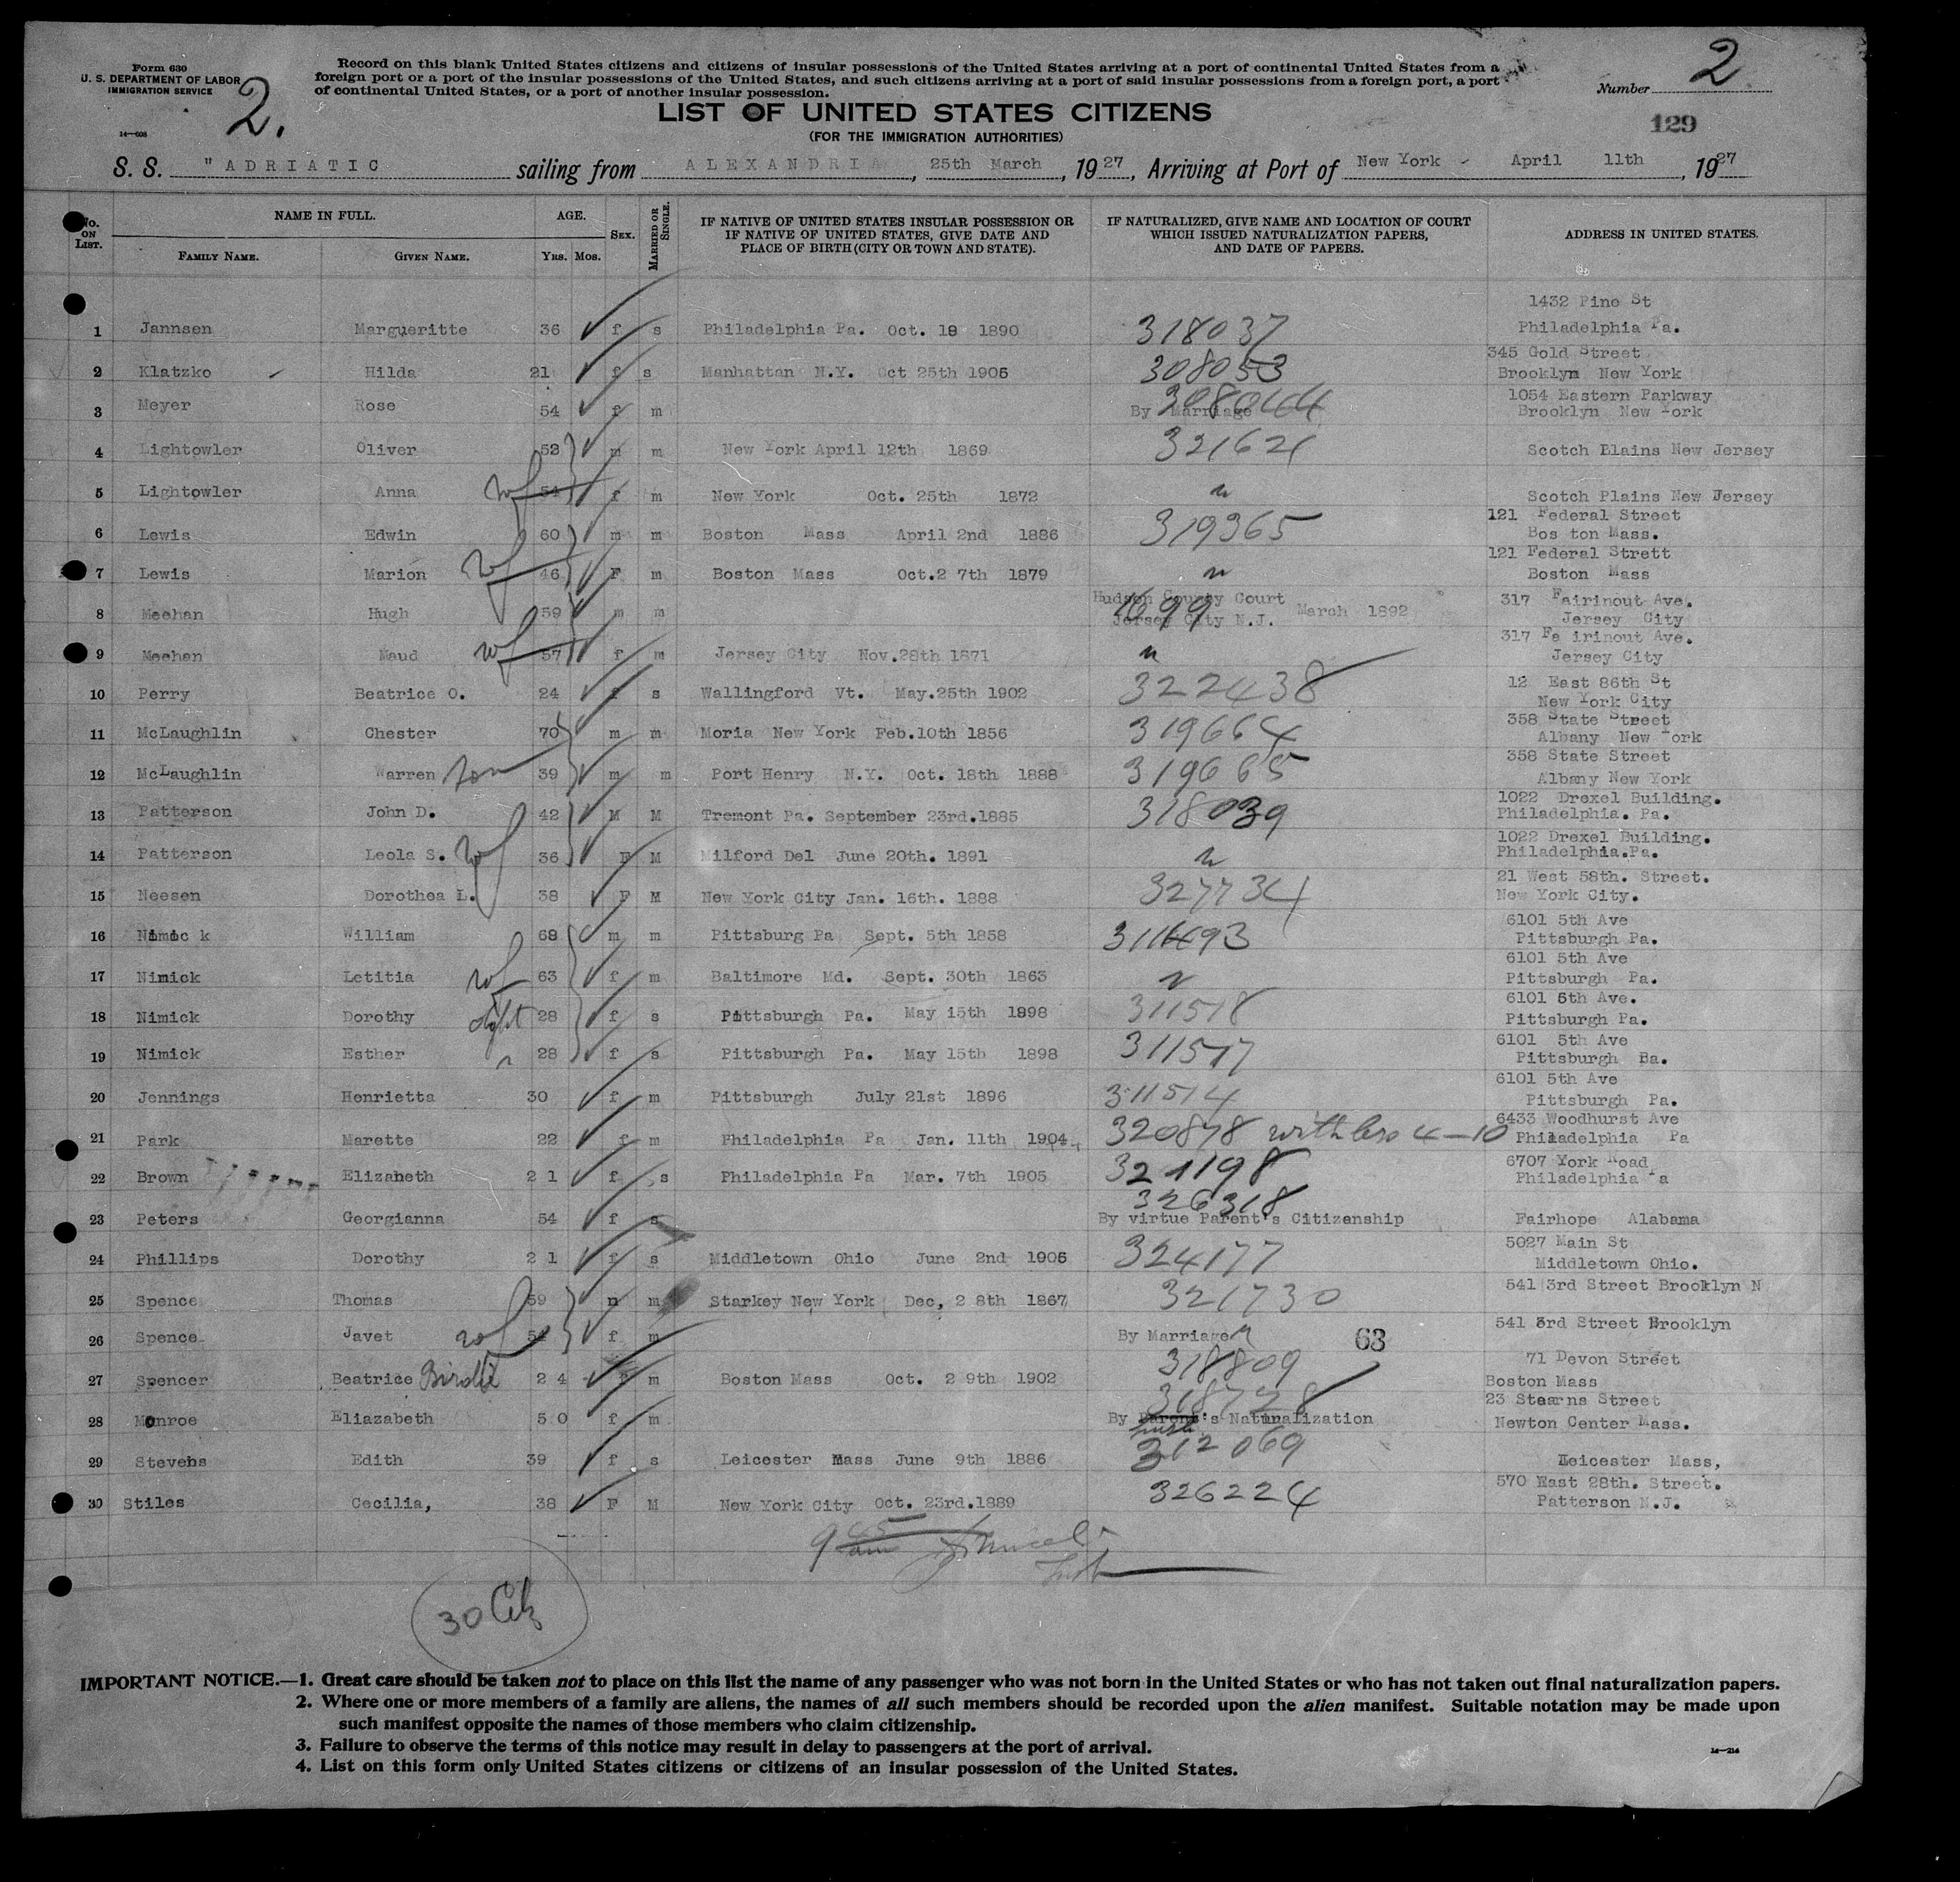 Form 630
U. S. DEPARTMENT OF LABOR
IMMIGRATION SERVICE
14—608
2.
Record on this blank United States citizens and citizens of insular possessions of the United States arriving at a port of continental United States from a
foreign port or a port of the insular possessions of the United States, and such citizens arriving at a port of said insular possessions from a foreign port, a port
of continental United States, or a port of another insular possession.
Number 2
129
LIST OF UNITED STATES CITIZENS
(FOR THE IMMIGRATION AUTHORITIES)
S. S. "ADRIATIC sailing from ALEXANDRIA, 25th March, 1927, Arriving at Port of New York April 11th, 1927
No. ON LIST. NAME IN FULL. FAMILY NAME. GIVEN NAME. AGE. YRS. MOS. SEX. MARRIED OR SINGLE. IF NATIVE OF UNITED STATES INSULAR POSSESSION OR IF NATIVE OF UNITED STATES, GIVE DATE AND PLACE OF BIRTH (CITY OR TOWN AND STATE). IF NATURALIZED, GIVE NAME AND LOCATION OF COURT WHICH ISSUED NATURALIZATION PAPERS, AND DATE OF PAPERS. ADDRESS IN UNITED STATES.
1 Jannsen Margueritte 36 f s Philadelphia Pa. Oct. 18 1890 318037 1432 Pine St Philadelphia Pa.
2 Klatzko Hilda 21 f s Manhattan N.Y. Oct 25th 1905 308053 345 Gold Street Brooklyn New York
3 Meyer Rose 54 f m By Marriage 308044 1054 Eastern Parkway Brooklyn New York
4 Lightowler Oliver 58 m m New York April 12th 1869 321621 Scotch Blains New Jersey
5 Lightowler Anna wf 54 f m New York Oct. 25th 1872 " Scotch Plains New Jersey
6 Lewis Edwin 60 m m Boston Mass April 2nd 1886 319365 121 Federal Street Bos ton Mass.
7 Lewis Marion wf 46 F m Boston Mass Oct.2 7th 1879 " 121 Federal Strett Boston Mass
8 Meehan Hugh 59 m m Hudson County Court Jersey City N.J. March 1892 1699 317 Fairinout Ave. Jersey City
9 Meehan Maud wf 57 f m Jersey City Nov.28th 1871 " 317 Fa irinout Ave. Jersey City
10 Perry Beatrice O. 24 f s Wallingford Vt. May.25th 1902 322438 12 East 86th St New York City
11 McLaughlin Chester 70 m m Moria New York Feb.10th 1856 319664 358 State Street Albany New York
12 McLaughlin Warren son 39 m m Port Henry N.Y. Oct. 18th 1888 319665 358 State Street Albany New York
13 Patterson John D. 42 M M Tremont Pa. September 23rd.1885 318039 1022 Drexel Building. Philadelphia. Pa.
14 Patterson Leola S. wf 36 F M Milford Del June 20th. 1891 " 1022 Drexel Building. Philadelphia.Pa.
15 Neesen Dorothea L. 38 F M New York City Jan. 16th. 1888 327734 21 West 58th. Street. New York City.
16 Nimic k William 68 m m Pittsburg Pa Sept. 5th 1858 311493 6101 5th Ave Pittsburgh Pa.
17 Nimick Letitia wf 63 f m Baltimore Md. Sept. 30th 1863 " 6101 5th Ave Pittsburgh Pa.
18 Nimick Dorothy dght 28 f s Pittsburgh Pa. May 15th 1898 311518 6101 5th Ave. Pittsburgh Pa.
19 Nimick Esther " 28 f s Pittsburgh Pa. May 15th 1898 311517 6101 5th Ave Pittsburgh Ba.
20 Jennings Henrietta 30 f m Pittsburgh July 21st 1896 311514 6101 5th Ave Pittsburgh Pa.
21 Park Marette 22 f m Philadelphia Pa Jan. 11th 1904 320878 with 4—10 6433 Woodhurst Ave Philadelphia Pa
22 Brown Elizabeth 2 1 f s Philadelphia Pa Mar. 7th 1905 321198 6707 York Road Philadelphia Pa
23 Peters Georgianna 54 f s 326318 By virtue Parent's Citizenship Fairhope Alabama
24 Phillips Dorothy 2 1 f s Middletown Ohio June 2nd 1905 324177 5027 Main St Middletown Ohio.
25 Spence Thomas 59 m m Starkey New York Dec, 2 8th 1867 321730 541 3rd Street Brooklyn N
26 Spence Javet wf f m By Marriage " 63 541 3rd Street Brooklyn
27 Spencer Beatrice Birdie 2 4 f m Boston Mass Oct. 2 9th 1902 318809 71 Devon Street Boston Mass
28 Monroe Eliazabeth 5 0 f m 318728 By Parent's Naturalization 23 Stearns Street Newton Center Mass.
29 Stevens Edith 39 f s Leicester Mass June 9th 1886 312069 Leicester Mass,
30 Stiles Cecilia, 38 F M New York City Oct. 23rd.1889 326224 570 East 28th. Street. Patterson N.J.
9 45 am
30 Citz
IMPORTANT NOTICE.—1. Great care should be taken not to place on this list the name of any passenger who was not born in the United States or who has not taken out final naturalization papers.
2. Where one or more members of a family are aliens, the names of all such members should be recorded upon the alien manifest. Suitable notation may be made upon
such manifest opposite the names of those members who claim citizenship.
3. Failure to observe the terms of this notice may result in delay to passengers at the port of arrival.
4. List on this form only United States citizens or citizens of an insular possession of the United States.
14—214